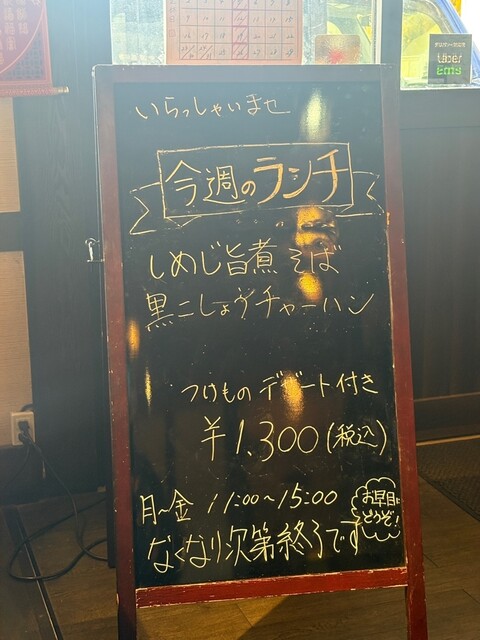 いらっしゃいませ
今週のランチ
しめじ旨煮そば
黒こしょうチャーハン
つけもの デザート付き
¥1.300(税込)
月〜金 11:00〜15:00
お早目に
どうぞ!
なくなり次第終了です
Uber
Eats